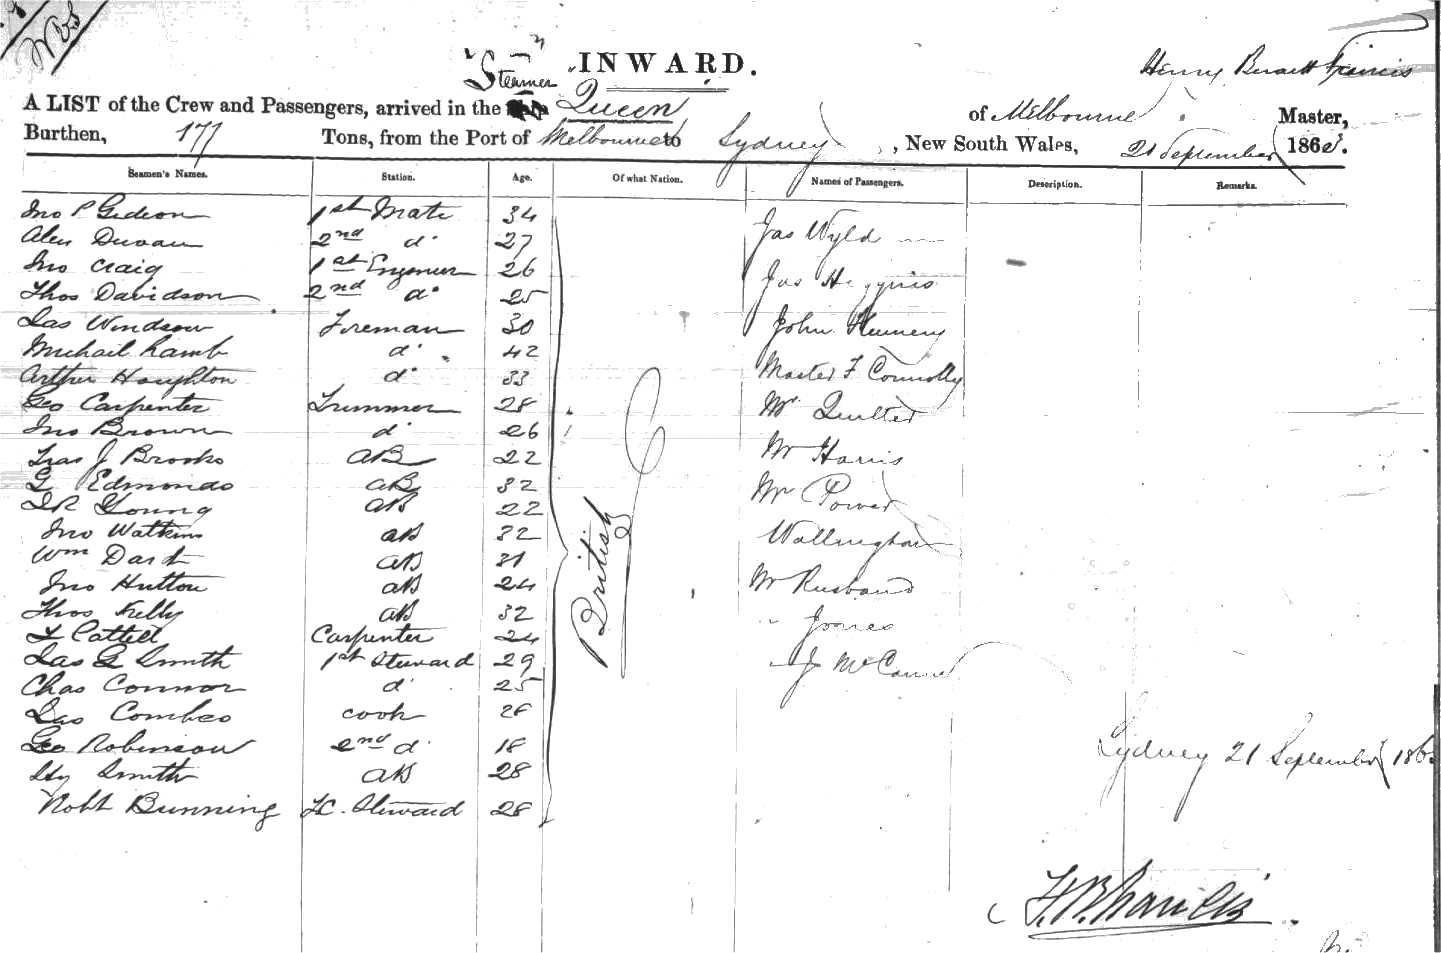 "Steamer"
INWARD.
Henry Francis
A LIST of the Crew and Passengers, arrived in the Queen of Melbourne Master,
Burthen, 177 Tons, from the Port of Melbourne to Sydney, New South Wales, 21 September 186
Seamen's Names. Station. Age. Of what Nation. Names of Passengers. Description. Remarks.
Jno P Gideon 1st Mate 34
Alex 2nd do 27 Jas Wyld
Jno Craig 1st Engineer 26
Thos Davidson 2nd do 25 Jas Higgins
Jas Windsor Fireman 30 John
Michail Lamb do 42
Arthur Houghton do 33 Master F Connolly
Geo Carpenter Trimmer 28 Mr Quilter
Jno Brown do 26
J Brooks AB 22 Mr Harris
G Edmonds AB 32
Young AB 22 Mr Power
Jno Watkins AB 32 Wallington
Wm Dart AB 31
Jno Hutton AB 24 Mr Husband
Thos Kelly AB 32 " Jones
Cattell Carpenter 24
Jas G Smith 1st Steward 29 " J
Chas Connor do 25
Jas Combes cook 28
Geo Robinson 2nd do 18
Hy Smith AB 28
Robt Bunning Steward 28
British
Sydney 21 September 186